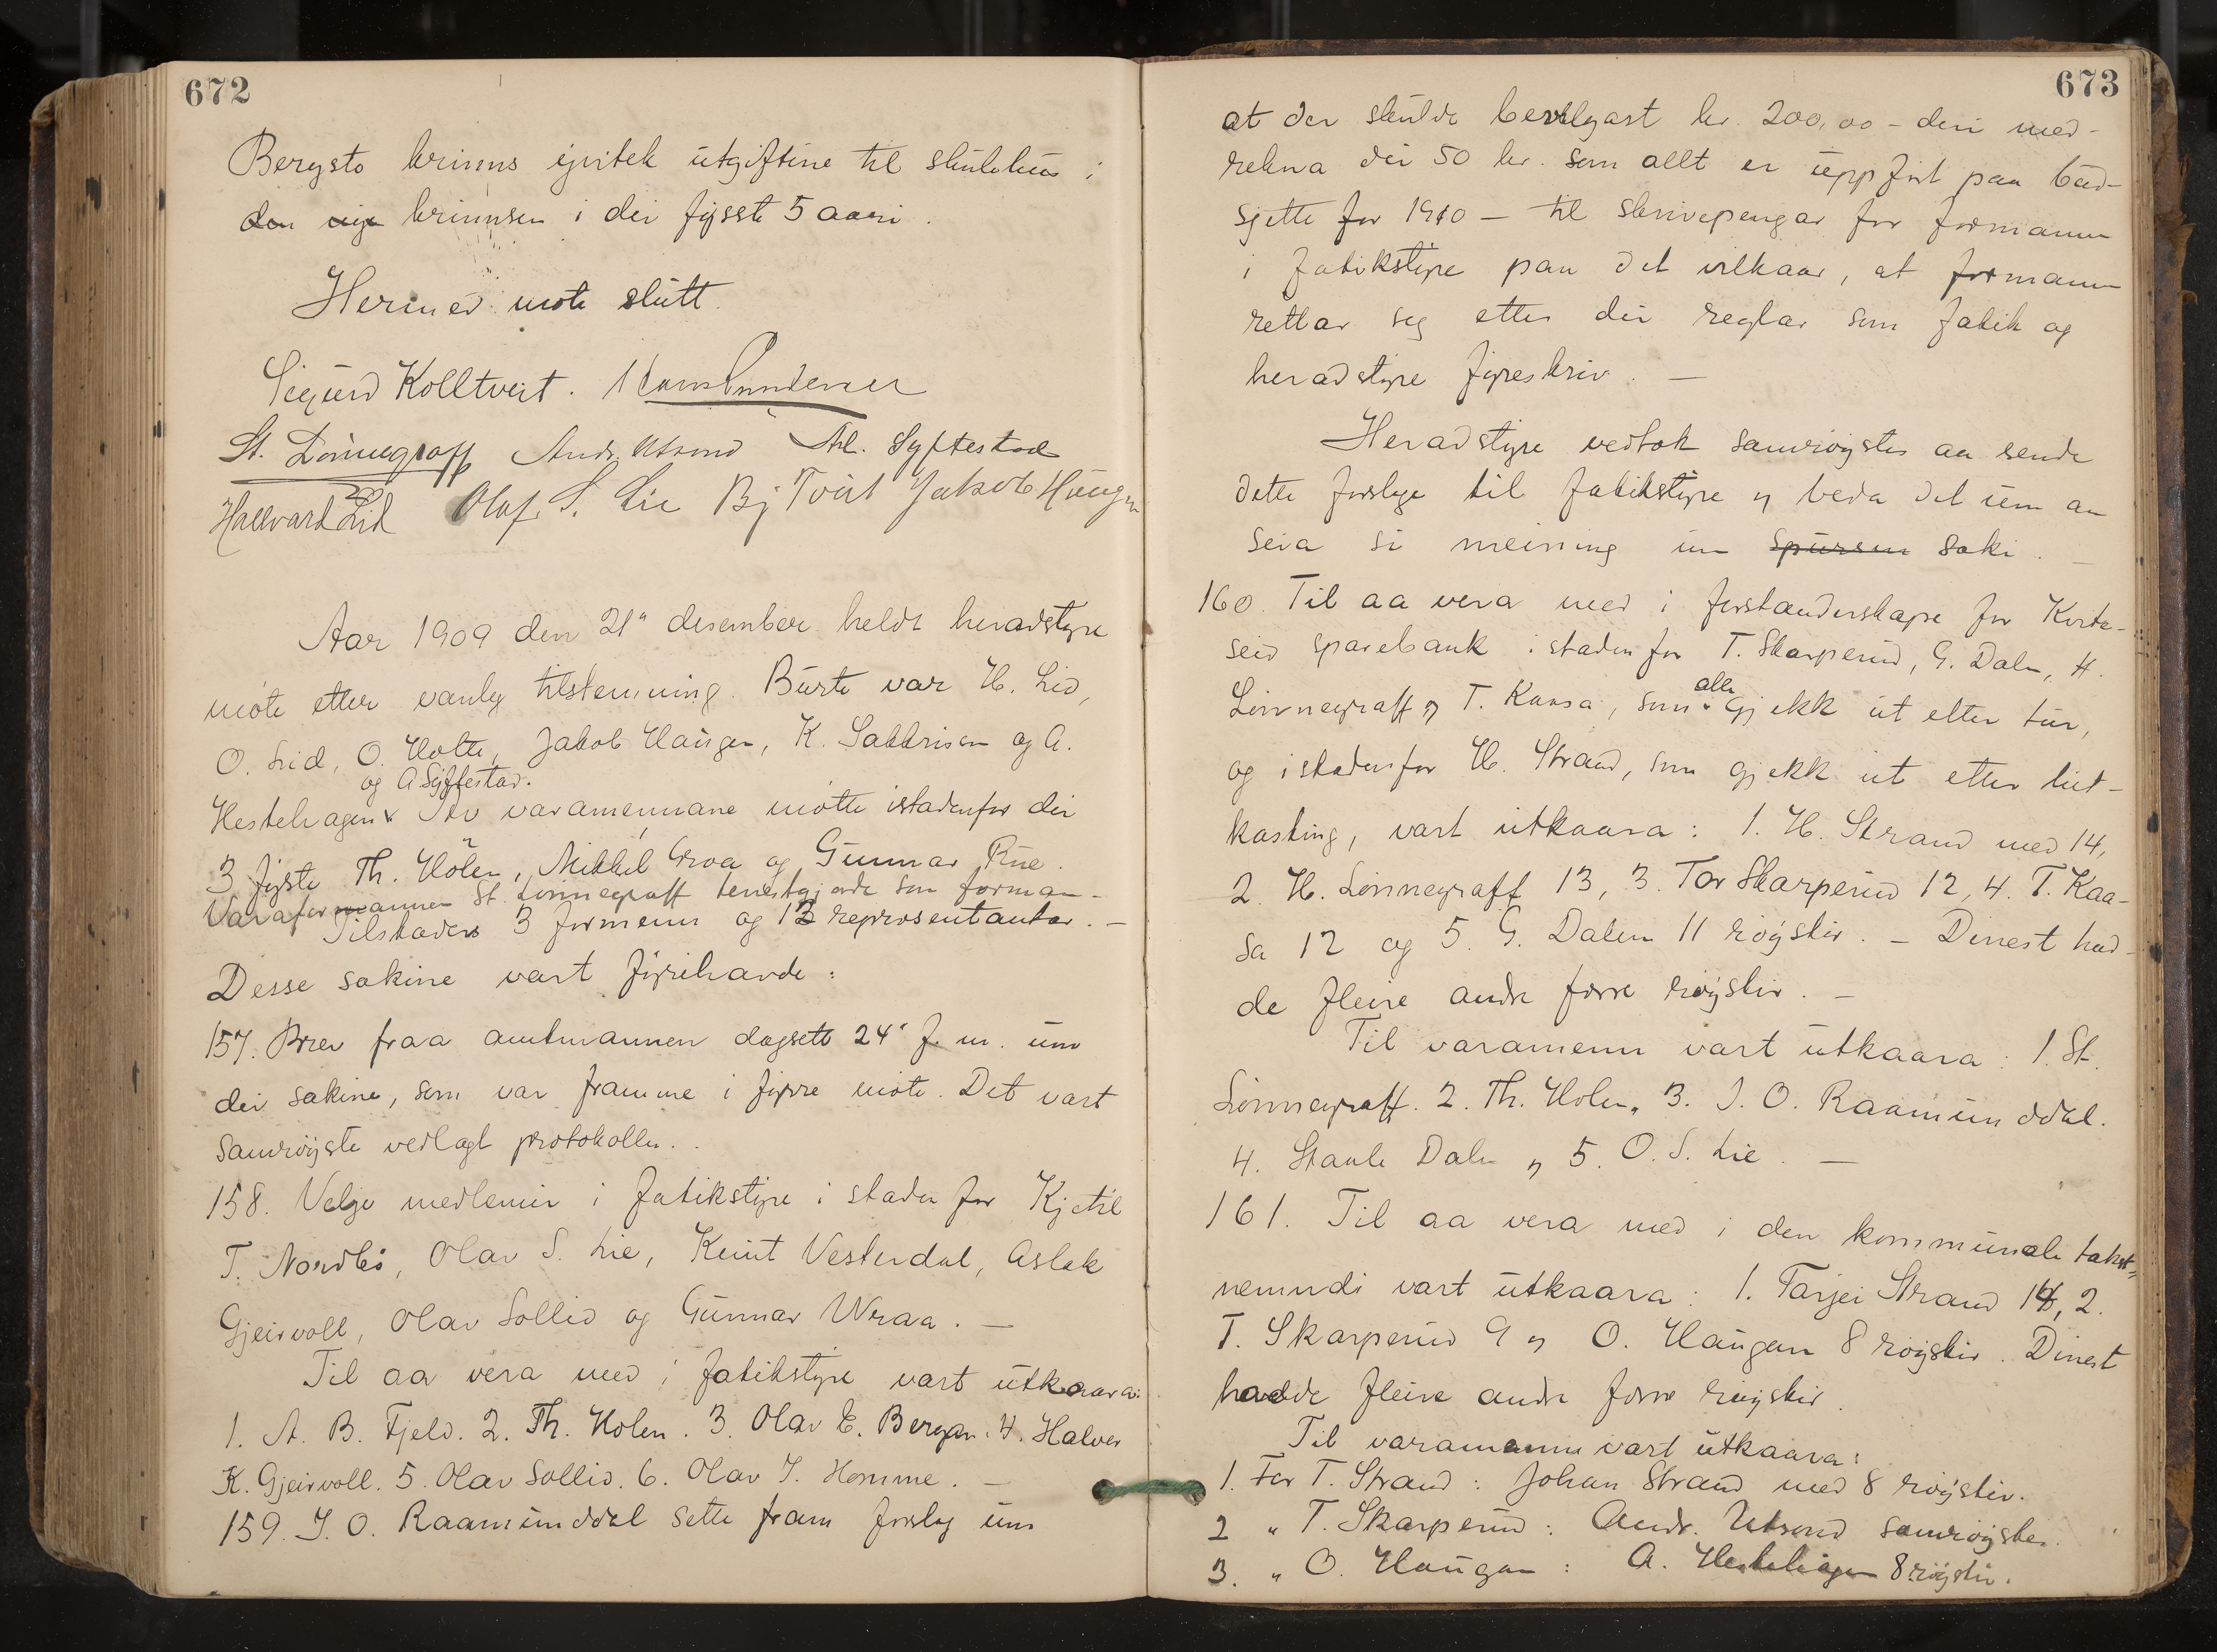 672
Bergsto krinns ijvitek utgiftine til skulehus i
den nye krinnsen i dei fysste 5 aari.
Hermed møte slutt.
Sigurd Kolltveit.
St. Lønnegraff Andr. Utsond Al. Syftestad
Hallvard Lid Olaf S. Lie Bj Tveit Jakob Haugen
Aar 1909 den 21" desember heldt heradstyre
møte etter vanleg tilstemning. Burte var H. Lid,
O. Lid, O. Holte, Jakob Haugen, K. Sakkrisen og A.
og A Syftestad.
Hestehagen Av varamennane møtte istadenfor dei
3 fyste Th. Holen, Mikkel Groa og Gunnar Rue.
Varaformannen St. Lønnegraff tenestgjorde som forman-
Tilstades 3 formenn og 12 representantar. —
Desse sakine vart fyrehavde:
157. Brev fraa amtmannen dagsett 24' f. m. um
dei sakine, som var framme i fyrre møte. Det vart
samrøyste vedlagt protokollen.
158. Velje medlemir i fatikstyre i staden for Kjetil
T. Nordbø, Olav S. Lie, Knut Vesterdal, Aslak
Gjeirvoll, Olav Sollid og Gunnar Wraa. —
Til aa vera med i fatikstyre vart utkaara:
1. A. B. Fjeld. 2. Th. Holen. 3. Olav E. Bergan. 4. Halvor
K. Gjeirvoll. 5. Olav Sollid. 6. Olav T. Homme. —
159. J. O. Raamunddal sette fram forslag um
673
at der skulde bevilgast kr. 200,00 - deri med-
rekna dei 50 kr. som allt er uppført paa bud-
sjette for 1910 — til skrivepengar for formannen
i fatikstyre paa det vilkaar, at formannen
rettar seg etter dei reglar som fatik og
heradstyre fyreskriv. —
Heradstyre vedtok samrøystes aa sende
dette forslage til fatikstyre og beda det um aa
seia si meining um spursm saki. —
160. Til aa vera med i forstanderskape for Kvite-
seid sparebank istaden for T. Skarperud, G. Dalen, H.
Lønnegraff og T. Kaasa, som alle gjekk ut etter tur,
og istadenfor H. Strand, som gjekk ut etter lut-
kasting, vart utkaara: 1. H. Strand med 14,
2. H. Lønnegraff 13, 3. Tor Skarperud 12, 4. T. Kaa-
sa 12 og 5. G. Dalen 11 røyster. — Dinest had-
de fleire andre færre røyster. —
Til varamenn vart utkaara: 1. St.
Lønnegraff. 2. Th. Holen, 3. J. O. Raamunddal.
4. Skaule Dalen og 5. O. S. Lie. —
161. Til aa vera med i den kommunale takst-
nemndi vart utkaara: 1. Tarjei Strand 14, 2.
T. Skarperud 9 og O. Haugan 8 røyster. Dinest
hadde fleire andre færre røyster.
Til varamenn vart utkaara:
1. For T. Strand: Johan Strand med 8 røyster.
2 " T. Skarperud: Andr. Utsond samrøystes.
3. " O. Haugan: A. Hestehagen 8 røyster.